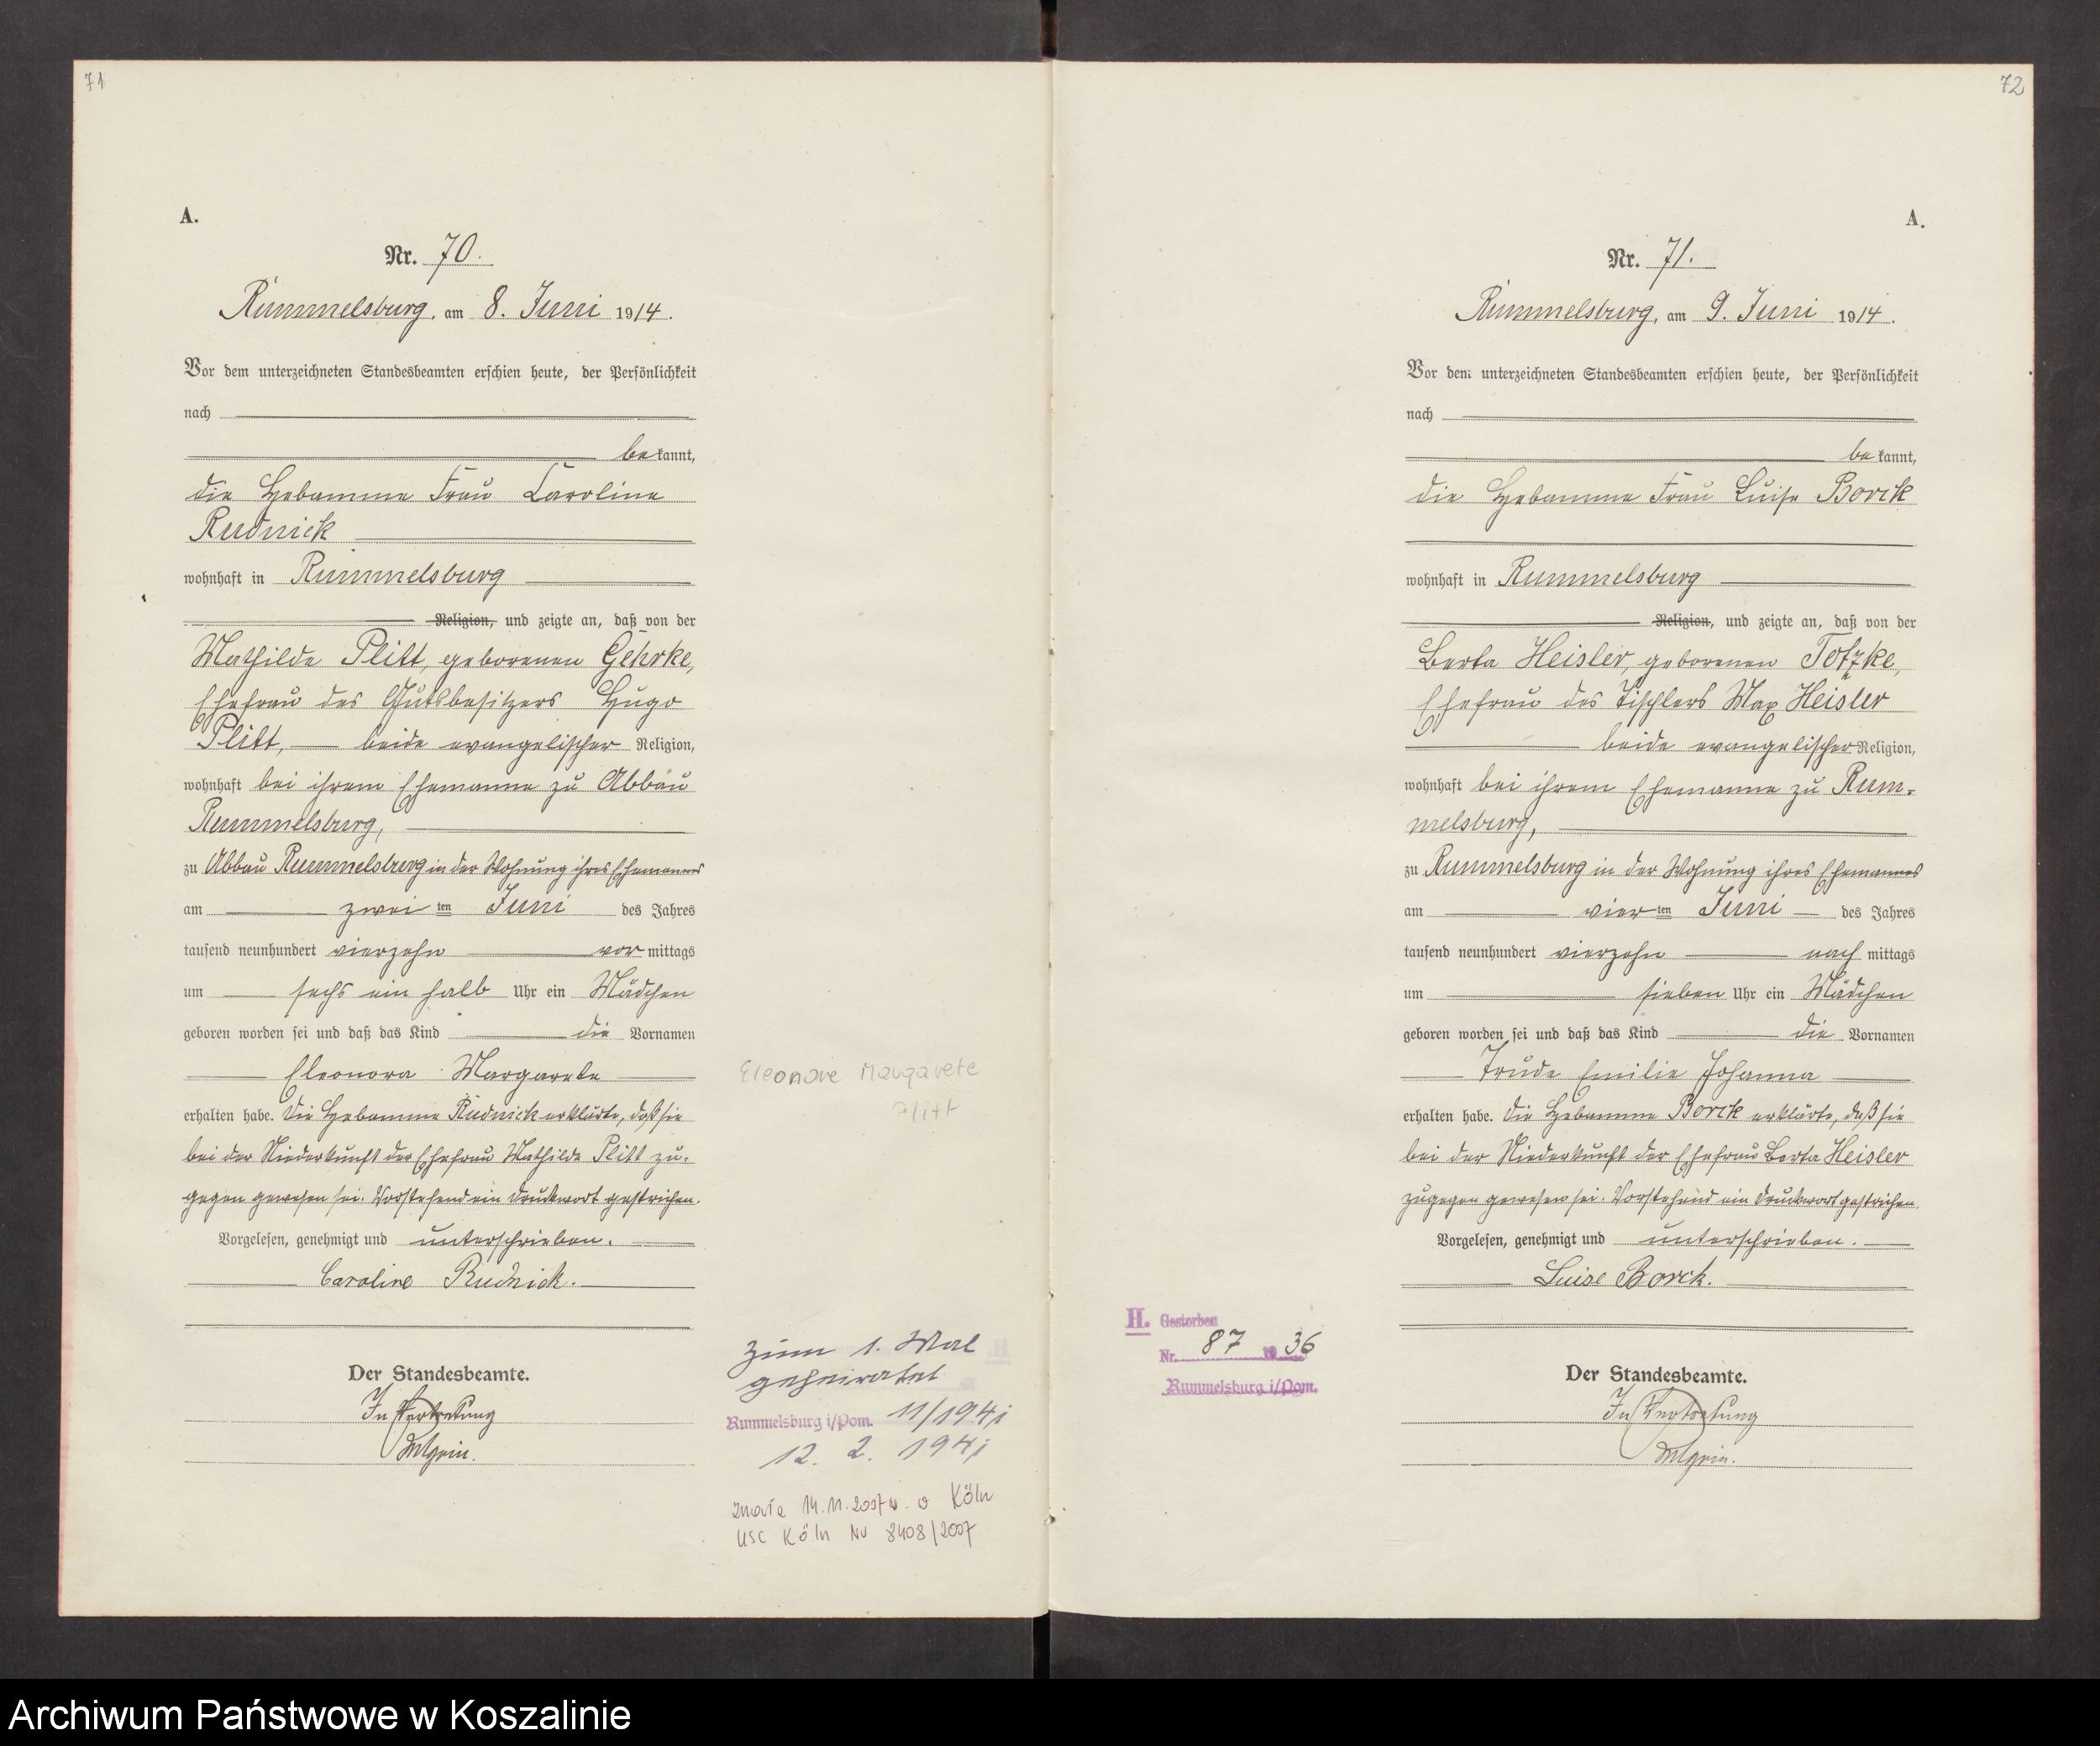 71
A.
Nr. 70.
Rummelsburg, am 8. Juni 1914.
Vor dem unterzeichneten Standesbeamten erschien heute, der Persönlichkeit
nach
bekannt,
die Hebamme Frau Caroline
Rudnick
wohnhaft in Rummelsburg
Religion, und zeigte an, daß von der
Mathilde Plitt, geborenen Gehrke,
Ehefrau des Gutsbesitzers Hugo
Plitt, beide evangelischer Religion,
wohnhaft bei ihrem Ehemanne zu Abbau
Rummelsburg,
zu Abbau Rummelsburg in der Wohnung ihres Ehemannes
am zweiten Juni des Jahres
tausend neunhundert vierzehn vormittags
um sechs ein halb Uhr ein Mädchen
geboren worden sei und daß das Kind die Vornamen
Eleonora Margarete
erhalten habe. Die Hebamme Rudnick erklärte, daß sie
bei der Niederkunft der Ehefrau Mathilde Plitt zu-
gegen gewesen sei. Vorstehend ein Druckwort gestrichen.
Vorgelesen, genehmigt und unterschrieben.
Caroline Rudnick.
Der Standesbeamte.
In Vertretung
Eleonore Margarete
Plitt
zum 1. Mal
geheiratet
Rummelsburg i/Pom. 11/1941
12. 2. 1941
zmarła 14.11.2007 w Köln
USC Köln Nr 8408/2007
72
A.
Nr. 71.
Rummelsburg, am 9. Juni 1914.
Vor dem unterzeichneten Standesbeamten erschien heute, der Persönlichkeit
nach
bekannt,
die Hebamme Frau Luise Borck
wohnhaft in Rummelsburg
Religion, und zeigte an, daß von der
Berta Heisler, geborenen Totzke,
Ehefrau des Tischlers Max Heisler
beide evangelischer Religion,
wohnhaft bei ihrem Ehemanne zu Rum-
melsburg,
zu Rummelsburg in der Wohnung ihres Ehemannes
am vierten Juni des Jahres
tausend neunhundert vierzehn nachmittags
um sieben Uhr ein Mädchen
geboren worden sei und daß das Kind die Vornamen
Trude Emilie Johanna
erhalten habe. Die Hebamme Borck erklärte, daß sie
bei der Niederkunft der Ehefrau Berta Heisler
zugegen gewesen sei. Vorstehend ein Druckwort gestrichen.
Vorgelesen, genehmigt und unterschrieben.
Luise Borck.
Der Standesbeamte.
In Vertretung
H. Gestorben
Nr. 87 1936
Rummelsburg i/Pom.
Archiwum Państwowe w Koszalinie